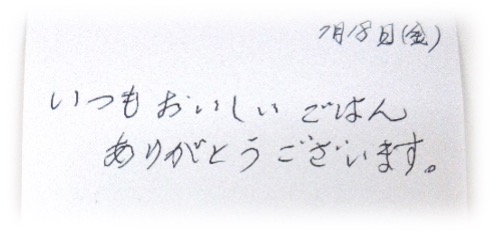 7月18日(金)
いつもおいしいごはん
ありがとうございます。